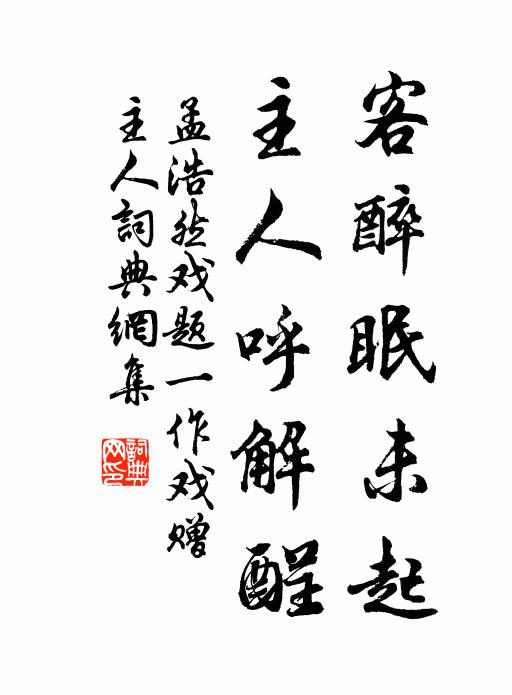 客醉眠未起
主人呼解酲
孟浩然戏题一作戏赠
主人詞典網集
詞典
网印